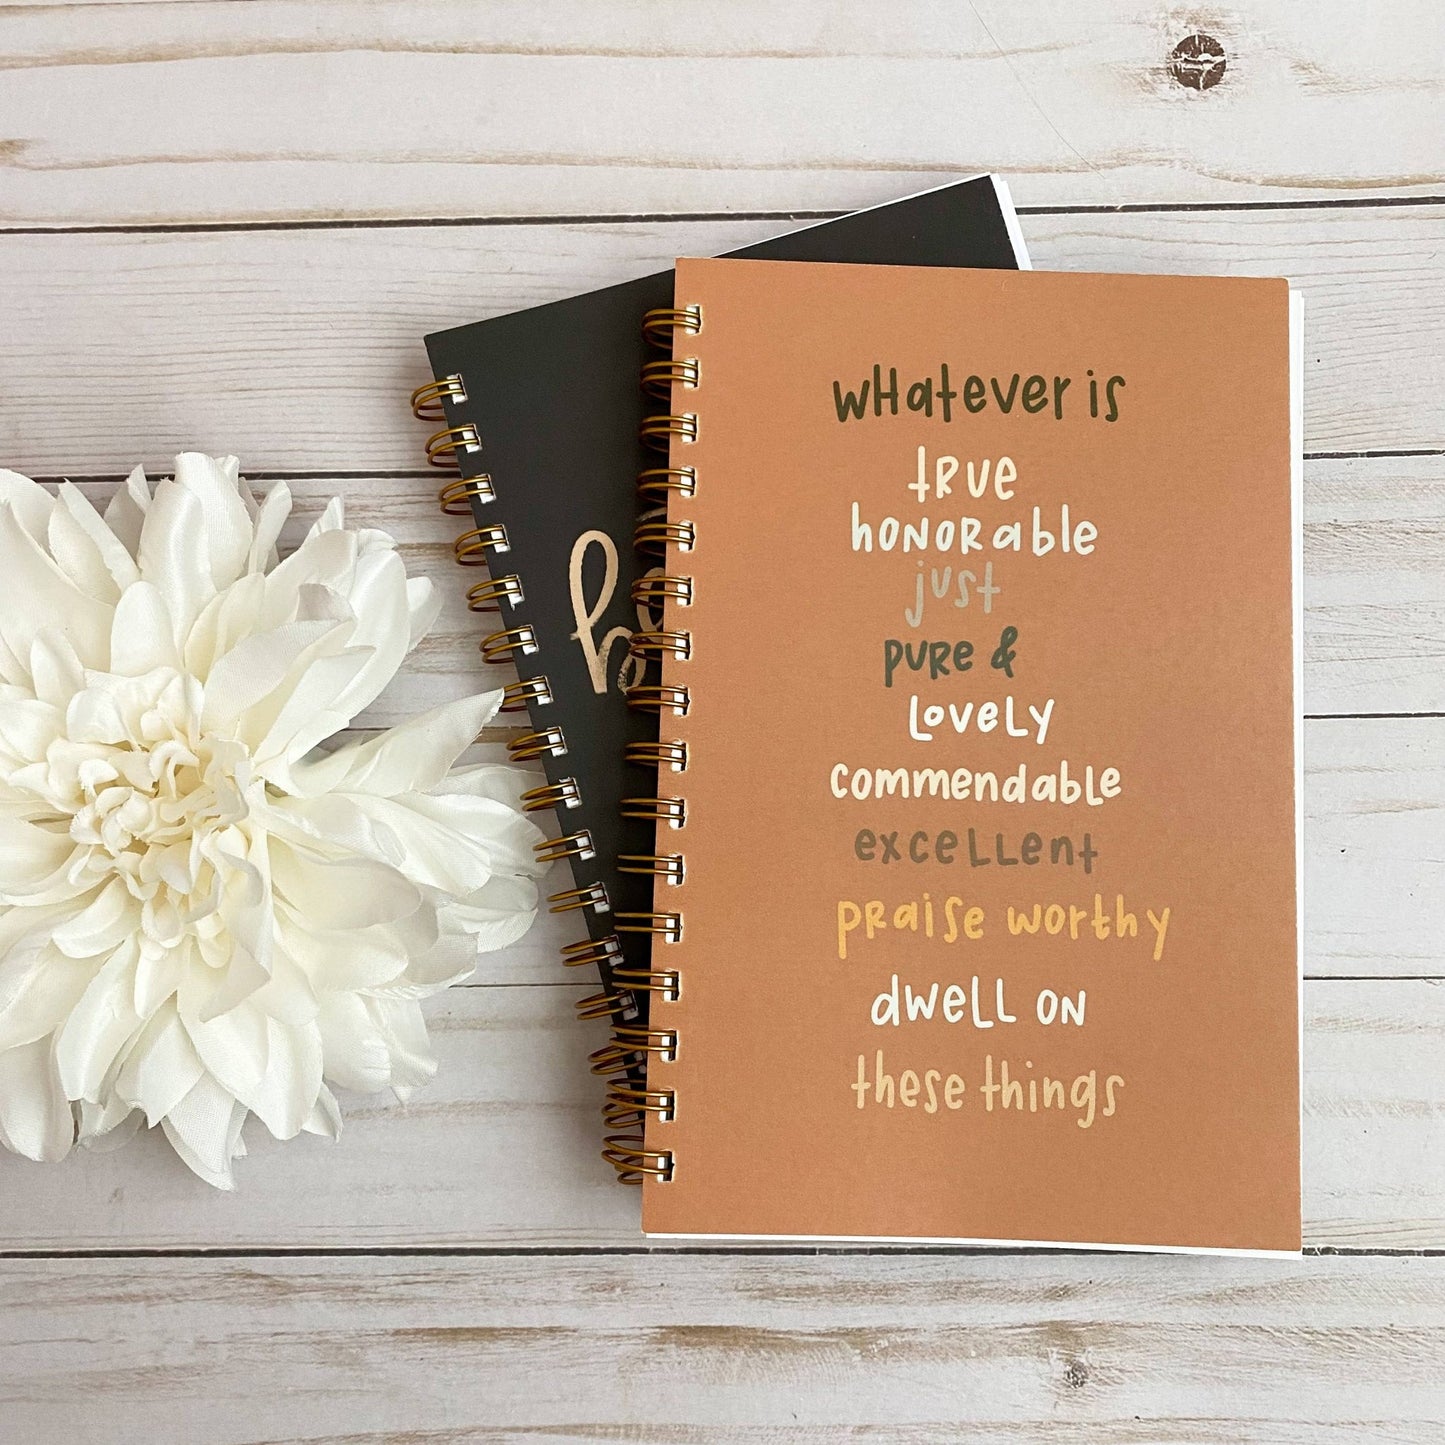 wHatever is
tRue
hoNoRable
just
puRe &
Lovely
commendable
exceLLent
pRaise worthy
dweLL oN
these things